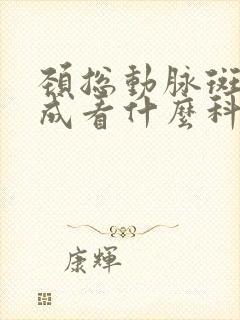 頸總動脈斑
成看什麼科
康輝